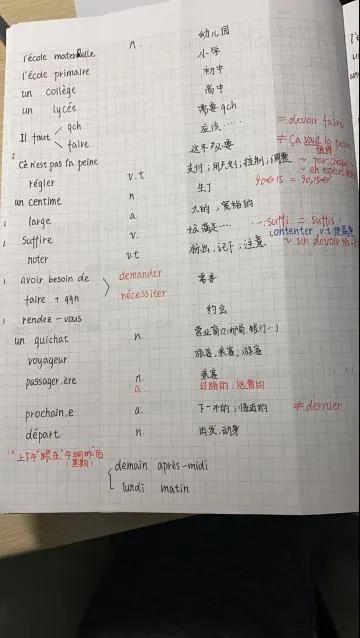 l'école maternelle n. 幼儿园
l'école primaire 小学
un collège 初中
un lycée 高中
Il faut qch 需要qch
faire 应该…… = devoir faire
Ce n'est pas la peine 这不必要 ≠ Ça vaut la peine 值得
régler v.t 支付; 控制; 调整 ~ par chèque
~ en espèces
un centime n. 生丁
large a. 大的, 宽裕的
Suffire v. suffi = suffis
contenter v.t
noter v.t 标出; 记下; 注意 ~ un devoir
avoir besoin de demander 需要
faire + qqn nécessiter
rendez-vous 约会
un guichet n. 营业窗口(邮局, 银行…)
voyageur 旅客, 乘客, 游客
passager.ère n. 乘客
a.
prochain,e a. 下一个的; 临近的 ≠ dernier
départ n. 出发, 动身
demain après-midi
lundi matin